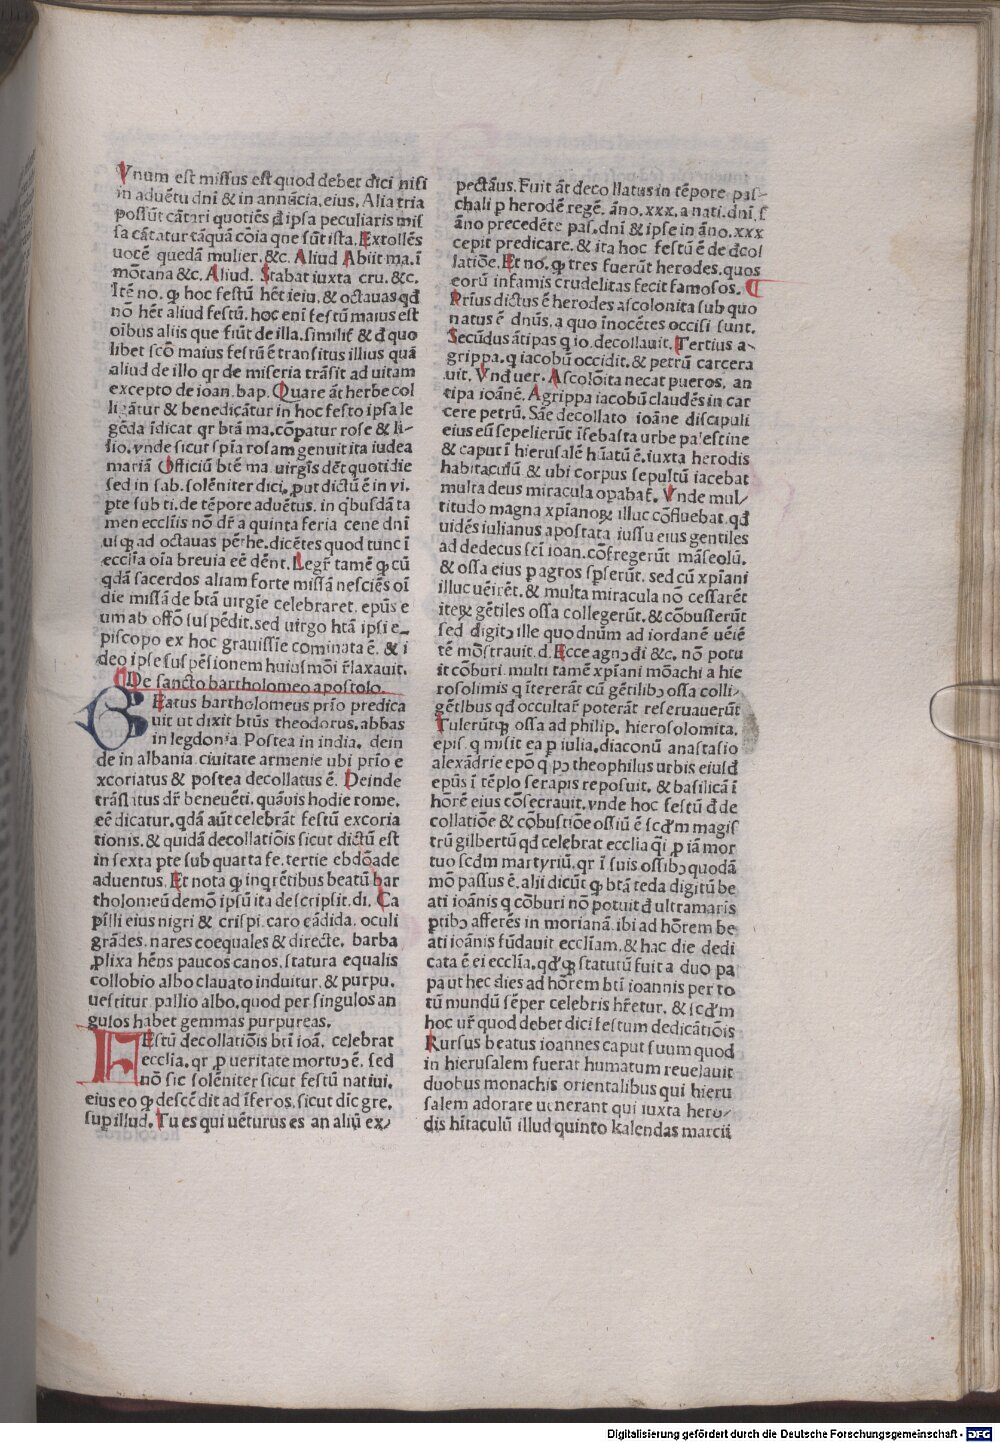 Vnum est missus est quod debet dici nisi
in aduētu dn̄i & in annūcia. eius. Alia tria
possūt cātari quotiēs đ ipsa peculiaris mis
sa cātatur tāquā cōia que sūt ista. Extollēs
uocē quedā mulier. &c. Aliud Abiit ma. ī
mōtana &c. Aliud. Stabat iuxta cru. &c.
Itē no. ꝙ hoc festū hēt ieiu. & octauas qđ
nō hēt aliud festū. hoc eni festū maius est
oībus aliis que fiūt de illa. similiē & đ quo
libet scō maius festū ē transitus illius quā
aliud de illo qr de miseria trāsit ad uitam
excepto de ioan. bap. Quare āt herbe col
ligātur & benedicātur in hoc festo ipsa le
gēda īdicat qr btā ma. cōpatur rose & li-
lio. vnde sicut spīa rosam genuit ita iudea
mariā Officiū btē ma. uirgīs dēt quotidie
sed in sab. solēniter dici. ꝓut dictū ē in vi.
pte sub ti. de tēpore aduētus. in qbusdā ta
men ecclīis nō dr̄ a quinta feria cene dnī
usqꝫ ad octauas pēthe. dicētes quod tunc ī
ecclīa oīa breuia eē dēnt. Legr̄ tamē ꝙ cū
qdā sacerdos aliam forte missā nesciēs oī
die missā de btā uirgīe celebraret. epūs e
um ab offō suspēdit. sed uirgo btā ipsi e-
piscopo ex hoc grauissīe cominata ē. & i
deo ipse suspēsionem huiusmōi r̄laxauit.
De sancto bartholomeo apostolo.
BEatus bartholomeus prīo predica
uit ut dixit btūs theodorus. abbas
in legdonia. Postea in india. dein
de in albania. ciuitate armenie ubi prīo e
xcoriatus & postea decollatus ē. Deinde
trāslatus dr̄ beneuēti. quāuis hodie rome.
eē dicatur. qdā aūt celebrāt festū excoria
tionis. & quidā decollatiōis sicut dictū est
in sexta pte sub quarta fe. tertie ebdōade
aduentus. Et nota ꝙ inqrētibus beatū bar
tholomeū demō ipsū ita descripsit. di. Ca
pilli eius nigri & crispi. caro cādida. oculi
grādes. nares coequales & directe. barba
ꝓlixa hēns paucos canos. statura equalis
collobio albo clauato induitur. & purpu.
uestitur pallio albo. quod per singulos an
gulos habet gemmas purpureas.
FEstū decollatiōis btī ioā. celebrat
ecclīa. qr ꝓ ueritate mortuꝰ ē. sed
nō sic solēniter sicut festū natiui.
eius eo ꝙ descēdit ad īferos. sicut dīc gre.
sup illud. Tu es qui uēturus es an aliū ex-
pectāus. Fuit āt decollatus in tēpore pas-
chali p herodē regē. āno. xxx. a nati. dnī. s
āno precedēte pas. dnī & ipse in āno. xxx
cepit predicare. & ita hoc festū ē de đcol
latiōe. Et no. ꝙ tres fuerūt herodes. quos
eorū infamis crudelitas fecit famosos.
Prīus dictus ē herodes ascolonita sub quo
natus ē dnūs. a quo īnocētes occisi sunt.
Secūdus ātipas q io. decollauit. Tertius a-
grippa. q iacobū occidit. & petrū carcera
uit. Vnđ uer. Ascolōita necat pueros. an
tipa ioānē. Agrippa iacobū claudēs in car
cere petrū. Sāe decollato ioāne discipuli
eius eū sepelierūt ī sebasta urbe palestine
& caput ī hierusalē hūatū ē. iuxta herodis
habitaculū & ubi corpus sepultū iacebat
multa deus miracula opabat̄. Vnde mul-
titudo magna xpianoꝝ illuc cōfluebat. qđ
uidēs iulianus apostata iussu eius gentiles
ad dedecus scī ioan. cōfregerūt māseolū.
& ossa eius p agros spserūt. sed cū xpiani
illuc uēirēt. & multa miracula nō cessarēt
iteꝝ gētiles ossa collegerūt. & cōbusterūt
sed digitꝰ ille quo dnūm ad iordanē uēiē
tē mōstrauit. d. Ecce agnꝰ đi &c. nō potu
it cōburi. multi tamē xpiani mōachi a hie
rosolimis q ītererāt cū gētilibꝰ ossa colli-
gētlbus qđ occultar̄ poterāt reseruauerūt
Tulerūtqꝫ ossa ad philip. hierosolomita.
epis. q misit ea p iulia. diaconū anastasio
alexādrie epō q pꝰ theophilus urbis eiusđ
epūs ī tēplo serapis reposuit. & basilicā ī
hōrē eius cōsecrauit. vnde hoc festū đ de
collatiōe & cōbustiōe ossiū ē scđm magis
trū gilbertū qđ celebrat ecclia qī ꝓ iā mor
tuo scđm martyriū. qr ī suis ossibꝰ quodā
mō passus ē. alii dicūt ꝙ btā teda digitū be
ati ioānis q cōburi nō potuit đ ultramaris
ptibꝰ afferēs in morianā. ibi ad hōrem be
ati ioānis fūdauit ecclīam. & hac die dedi
cata ē ei ecclīa. qđqꝫ statutū fuit a duo pa
pa ut hec dies ad hōrem btī ioannis per to
tū mundū sēper celebris hr̄etur. & scđm
hoc ur̄ quod debet dici festum dedicātiōis
Rursus beatus ioannes caput suum quod
in hierusalem fuerat humatum reuelauit
duobus monachis orientalibus qui hieru
salem adorare uenerant qui iuxta hero-
dis hītaculū illud quinto kalendas marcii
Digitalisierung gefördert durch die Deutsche Forschungsgemeinschaft - DFG